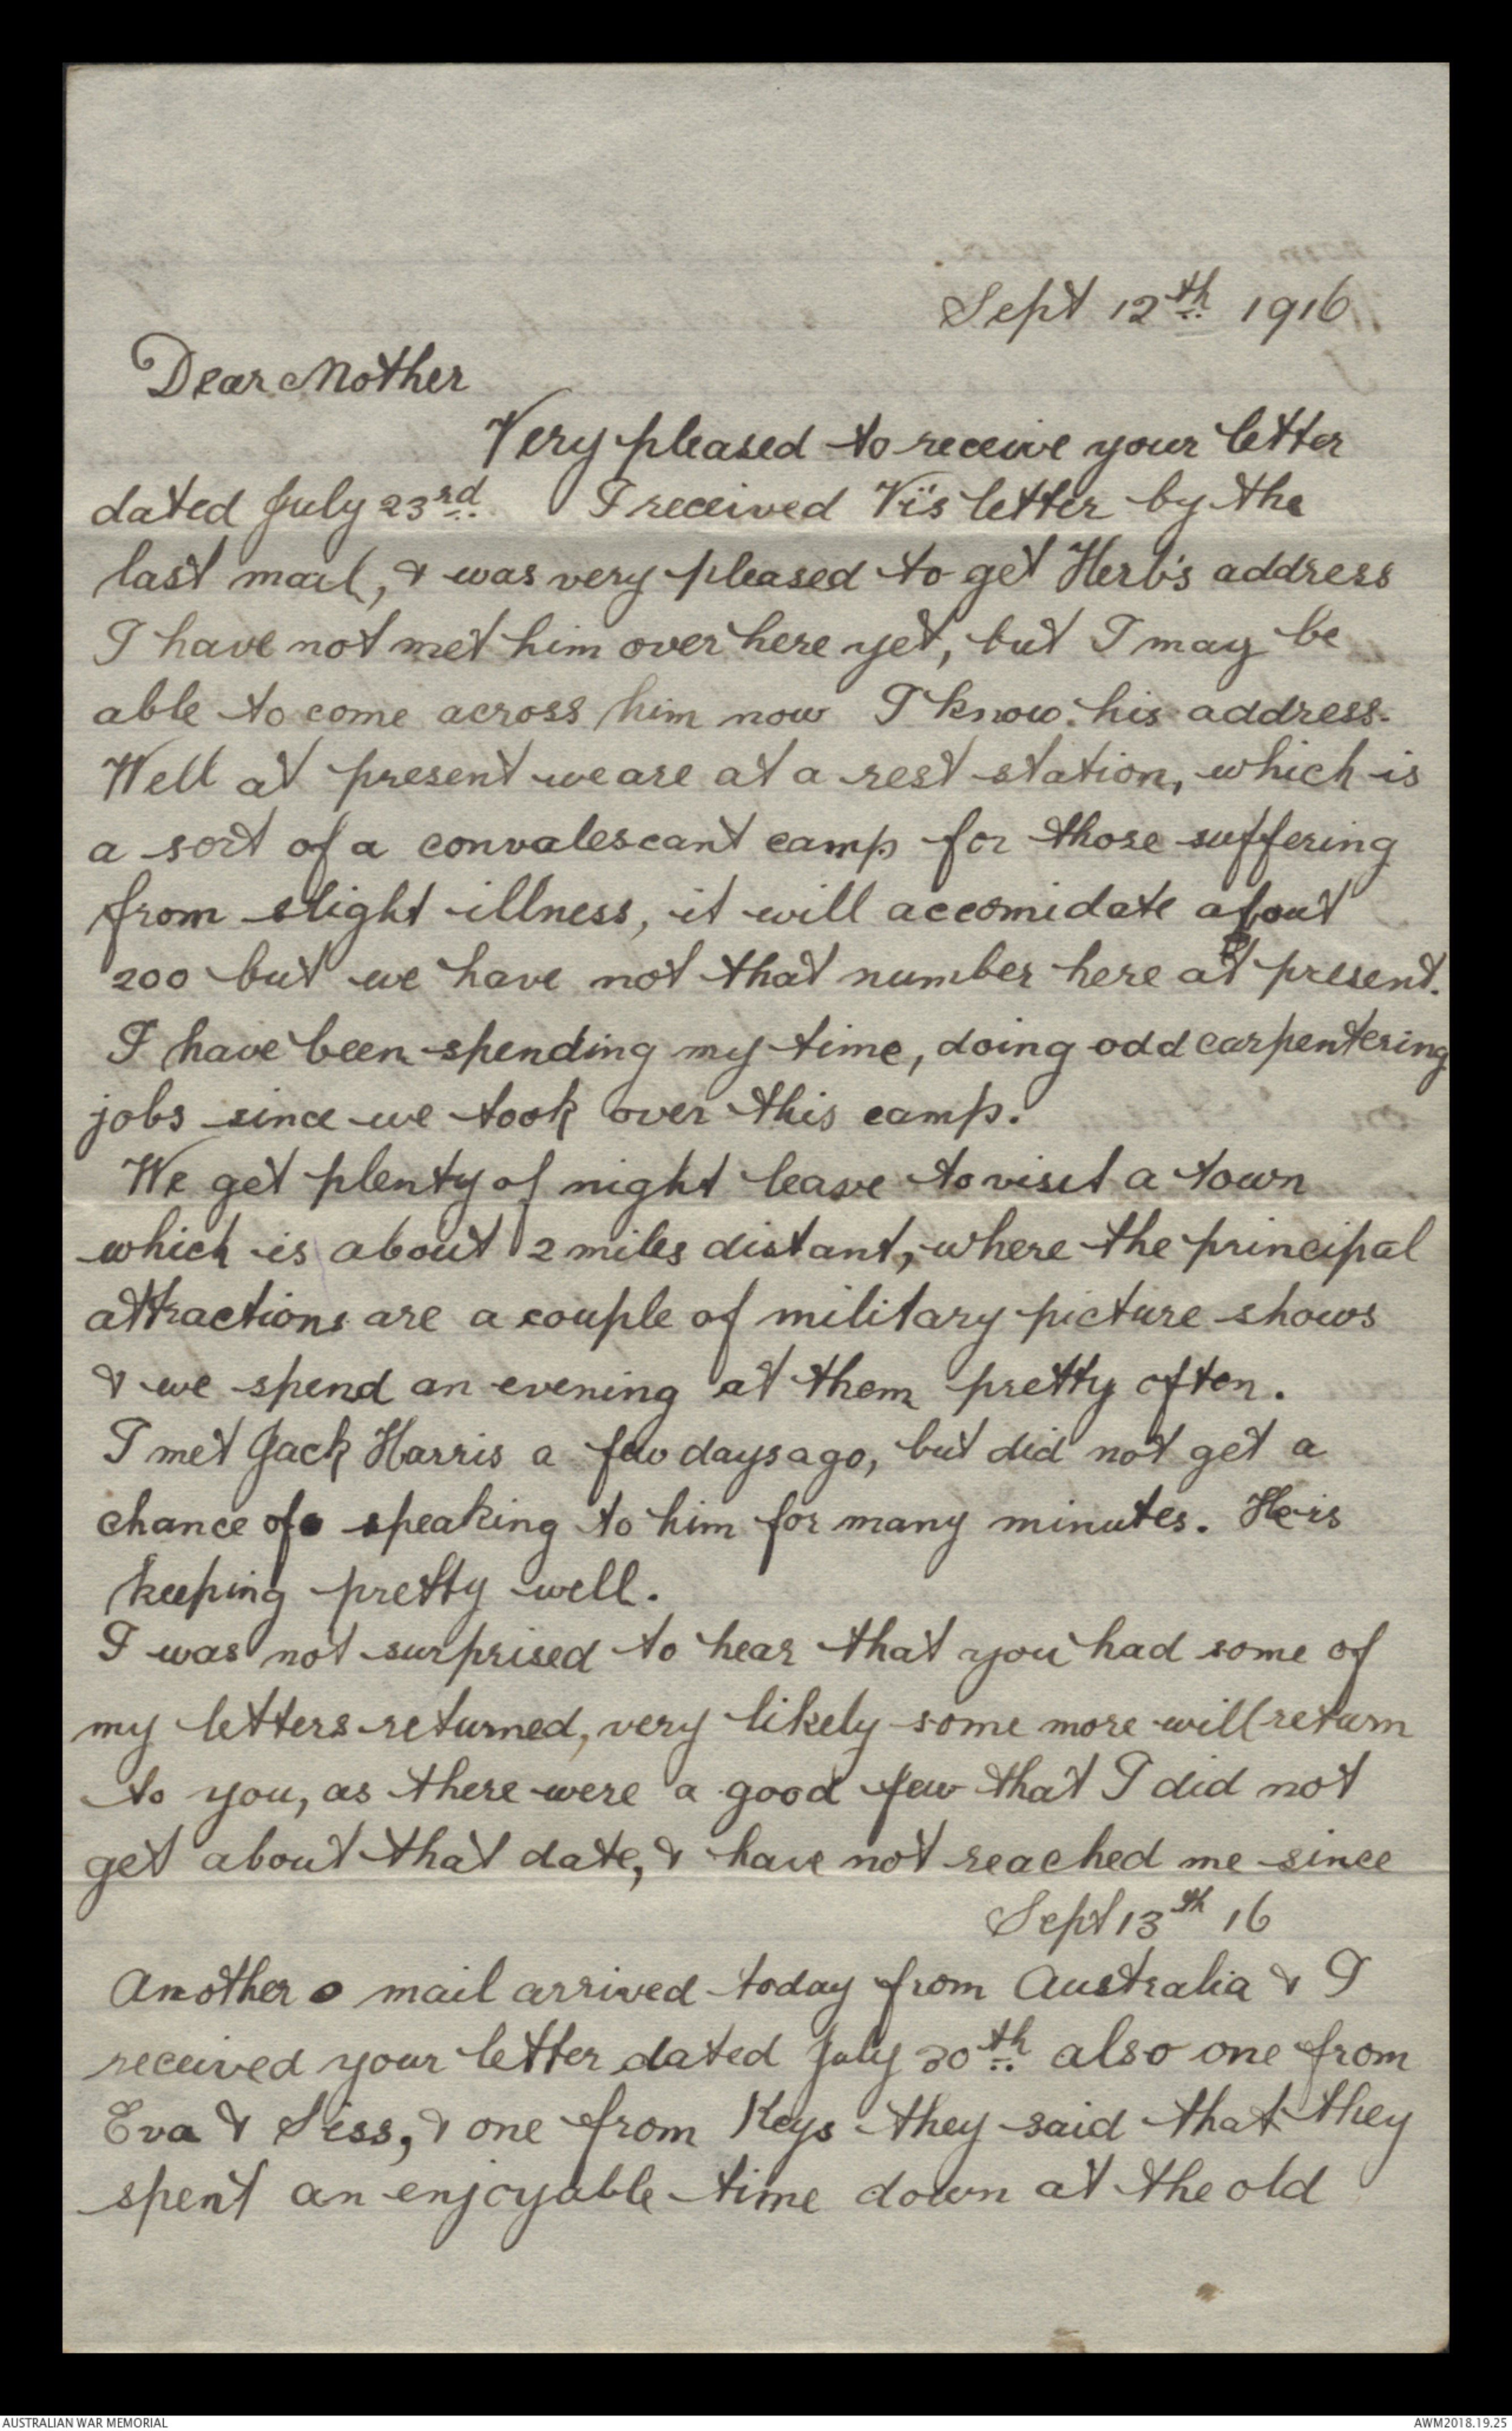 Sept 12th 1916
Dear Mother
Very pleased to receive your letter
dated July 23rd. I received Vi's letter by the
last mail, & was very pleased to get Herb's address
I have not met him over here yet, but I may be
able to come across him now I know his address.
Well at present we are at a rest station, which is
a sort of a convalescant camp for those suffering
from slight illness, it will accomidate about
200 but we have not that number here at present.
I have been spending my time, doing odd carpentering
jobs since we took over this camp.
We get plenty of night leave to visit a town
which is about 2 miles distant, where the principal
attractions are a couple of military picture shows
& we spend an evening at them pretty often.
I met Jack Harris a few days ago, but did not get a
chance of speaking to him for many minutes. He is
keeping pretty well.
I was not surprised to hear that you had some of
my letters returned, very likely some more will return
to you, as there were a good few that I did not
get about that date, & have not reached me since
Sept 13th 16
Another mail arrived today from Australia & I
received your letter dated July 30th also one from
Eva & Siss, & one from Keys they said that they
spent an enjoyable time down at the old
AUSTRALIAN WAR MEMORIAL
AWM2018.19.25